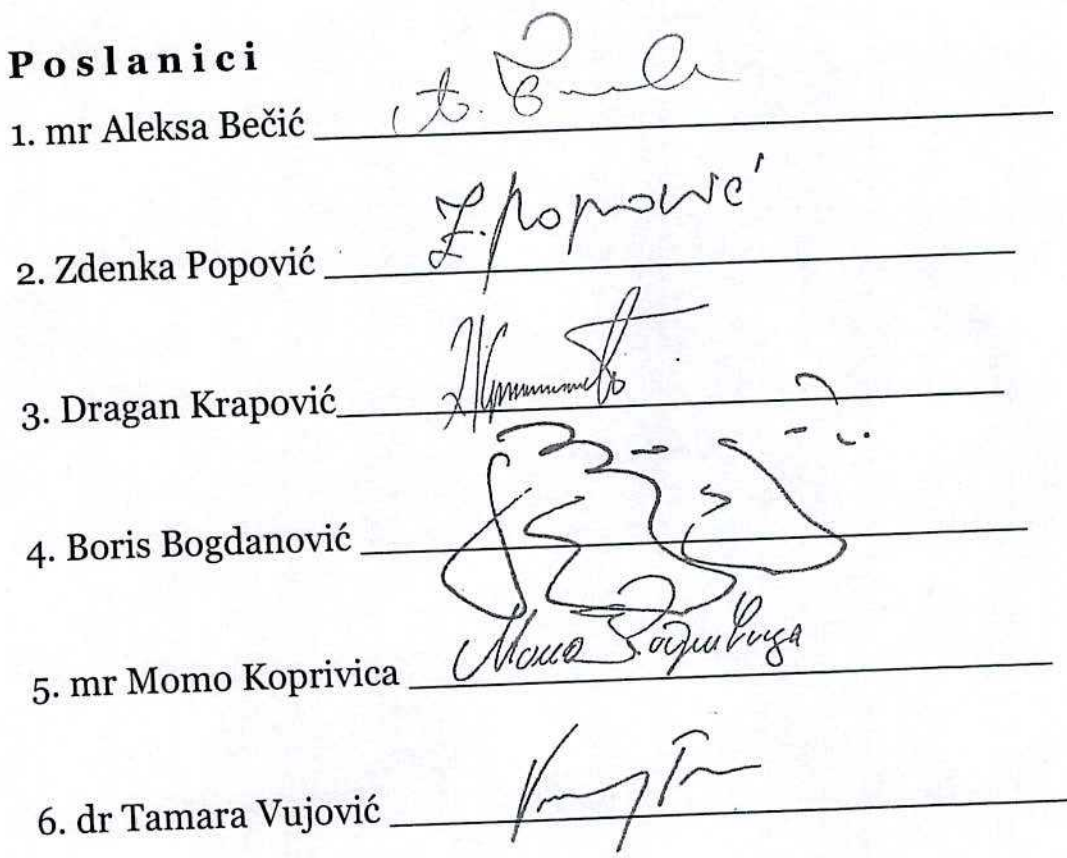 Poslanici
1. mr Aleksa Bečić
2. Zdenka Popović Z. Popović
3. Dragan Krapović
4. Boris Bogdanović
5. mr Momo Koprivica
6. dr Tamara Vujović